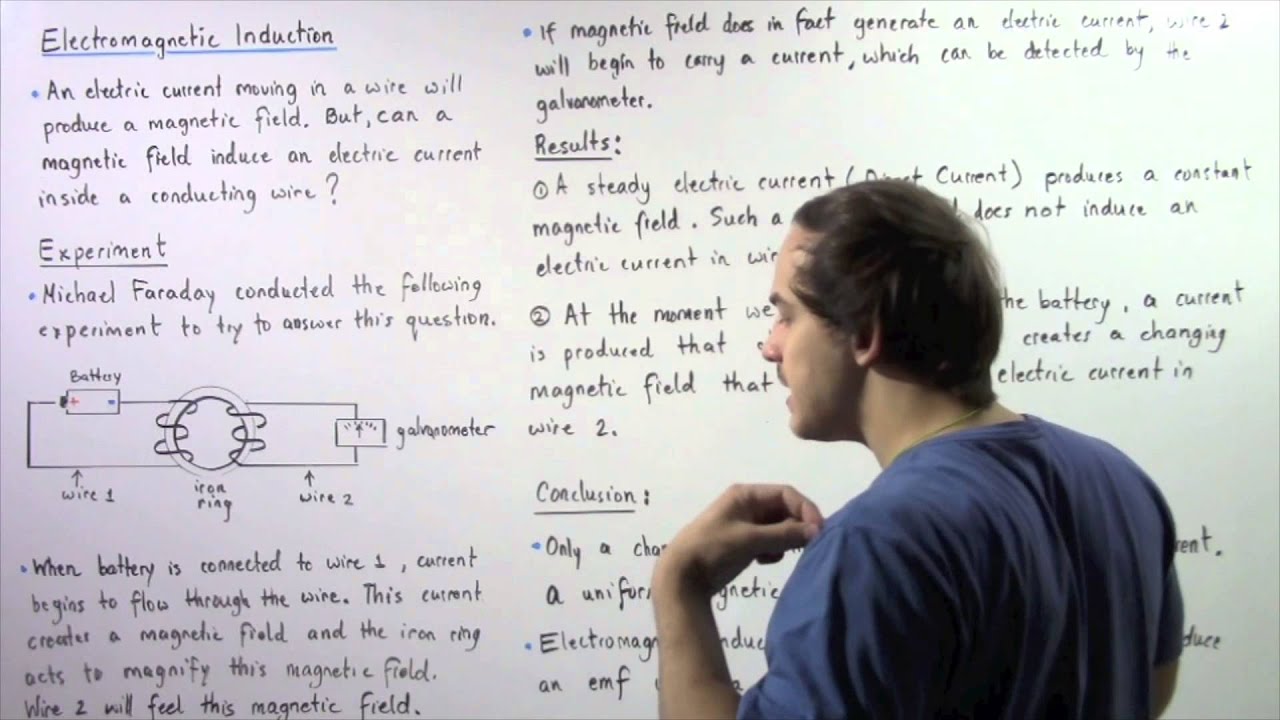 Electromagnetic Induction
• An electric current moving in a wire will
produce a magnetic field. But, can a
magnetic field induce an electric current
inside a conducting wire?
Experiment
• Michael Faraday conducted the following
experiment to try to answer this question.
Battery
+ -
galvanometer
wire 1
iron
ring
wire 2
• When battery is connected to wire 1, current
begins to flow through the wire. This current
creates a magnetic field and the iron ring
acts to magnify this magnetic field.
Wire 2 will feel this magnetic field.
• If magnetic field does in fact generate an electric current, wire 2
will begin to carry a current, which can be detected by the
galvanometer.
Results:
① A steady electric current (Direct Current) produces a constant
magnetic field. Such a does not induce an
electric current in
② At the moment we the battery, a current
is produced that creates a changing
magnetic field that electric current in
wire 2.
Conclusion:
• Only a
a
•
an emf